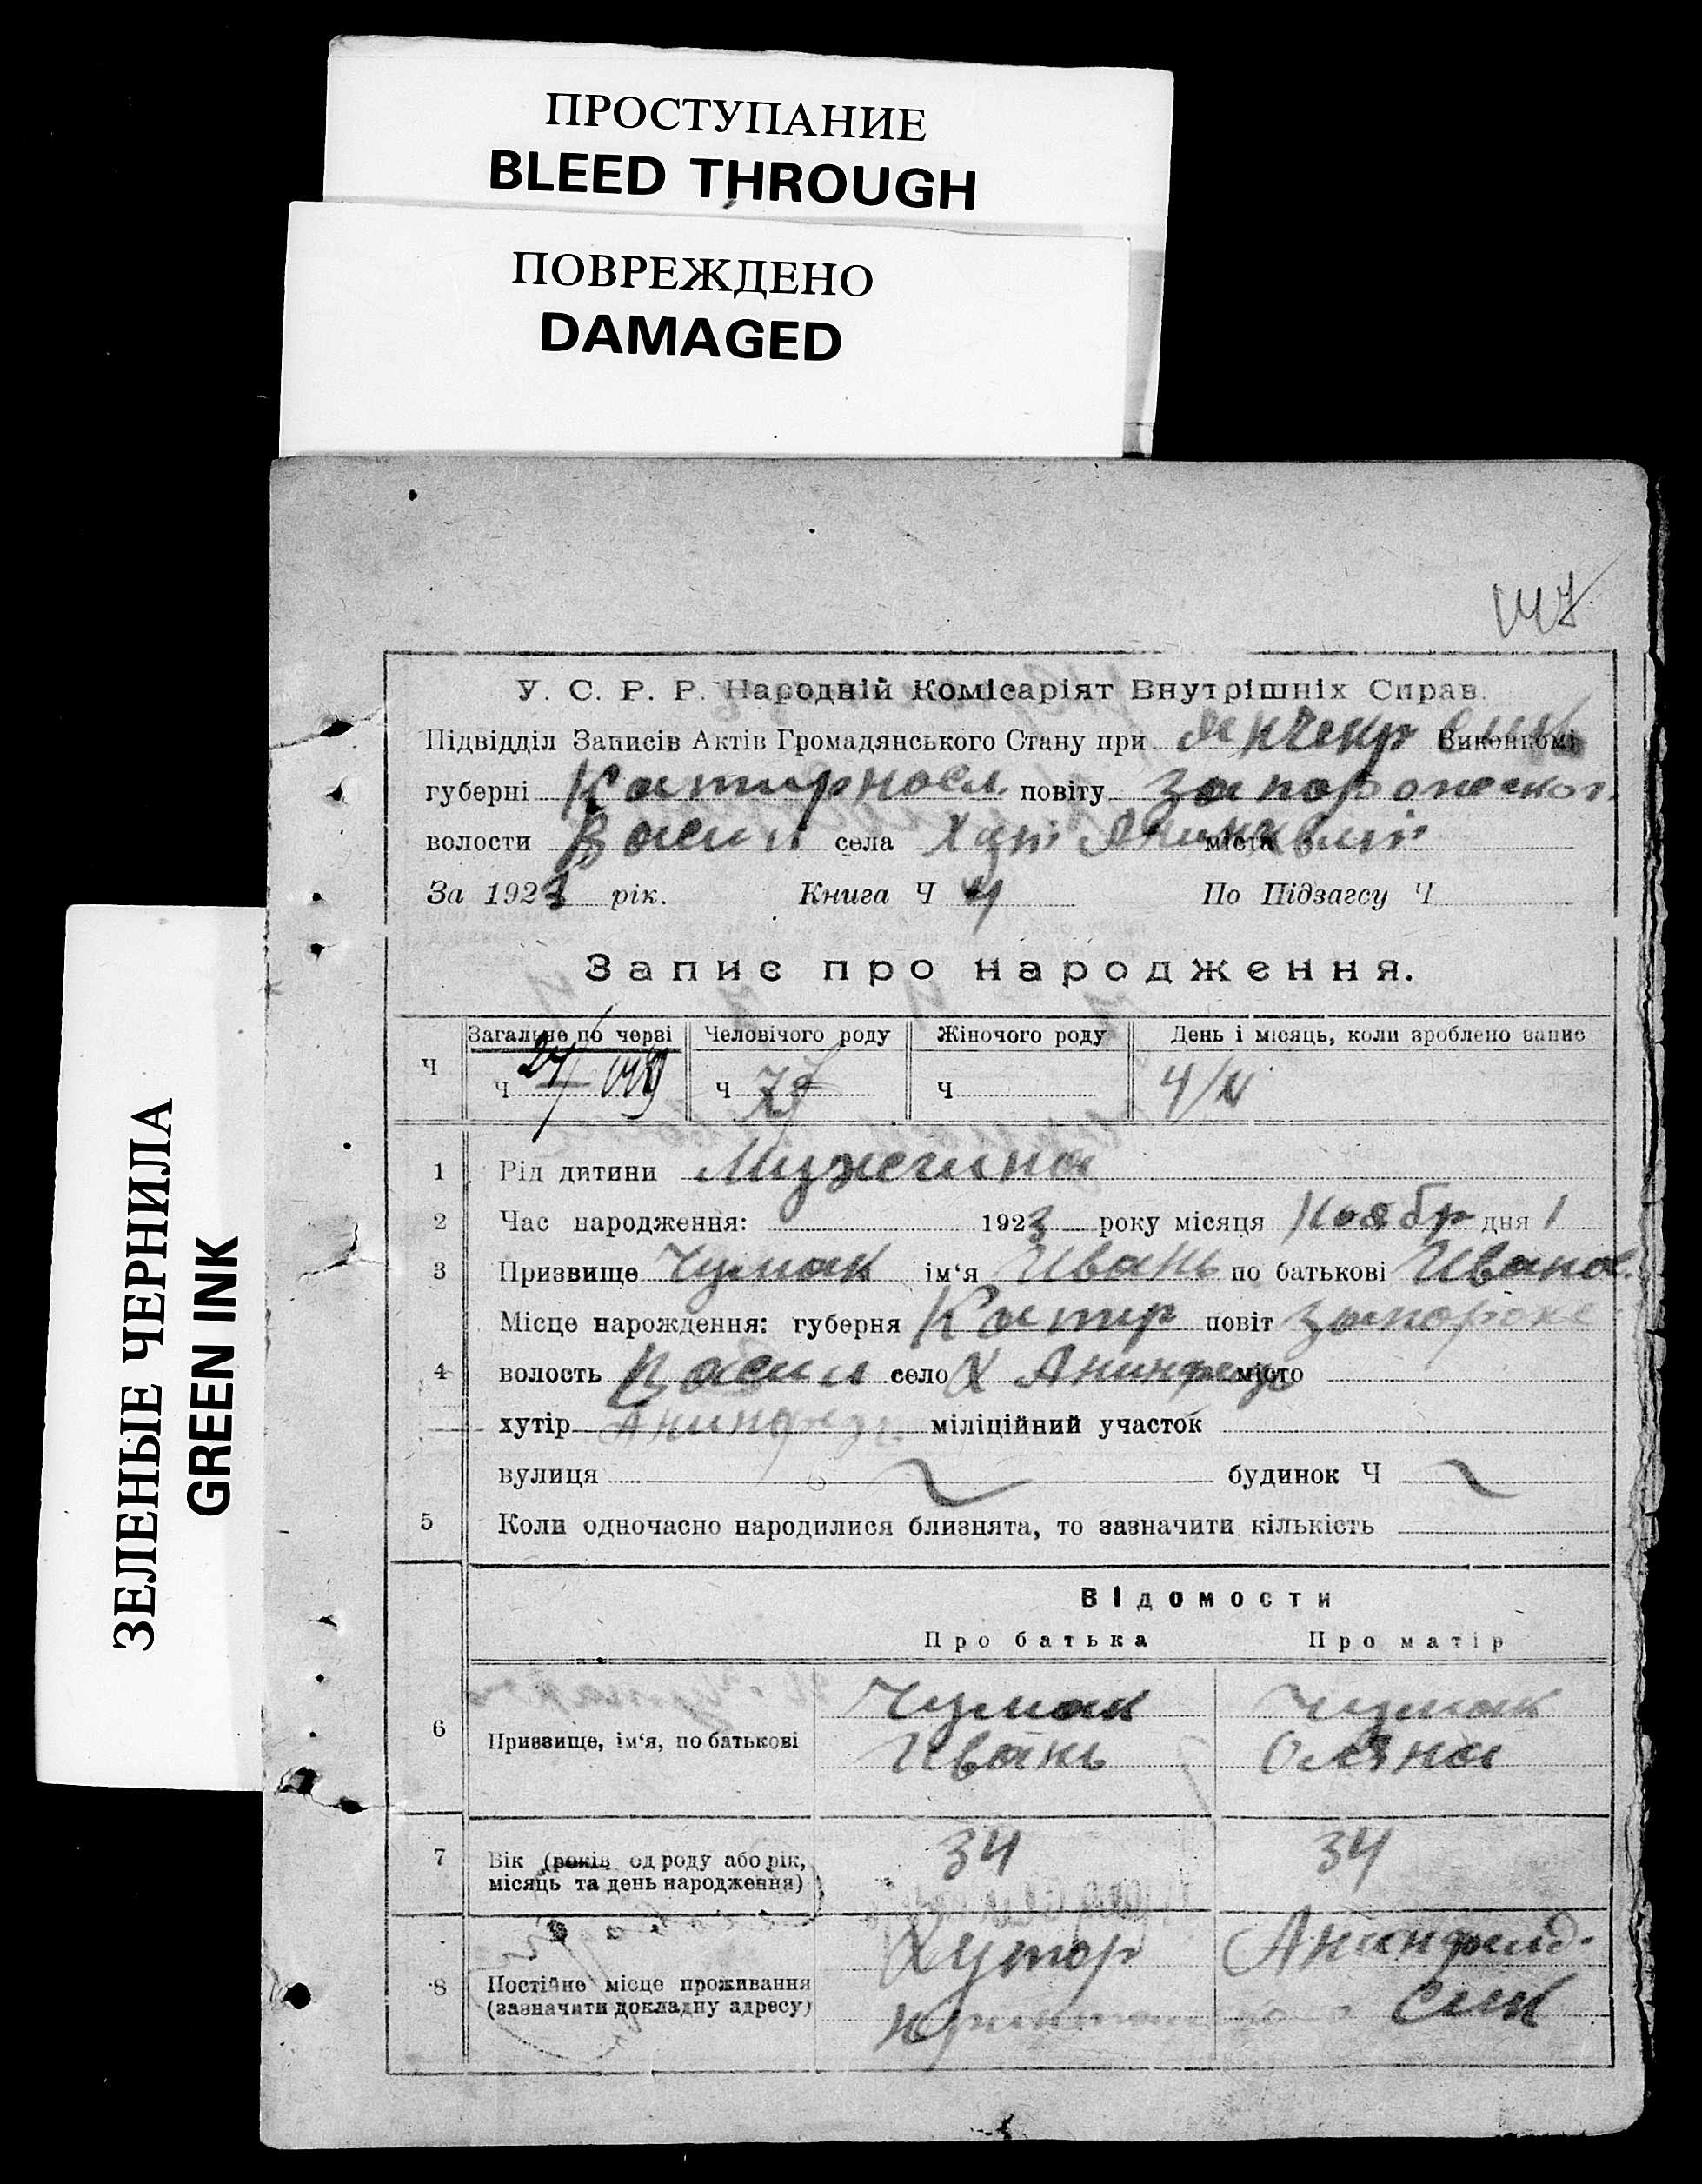 ПРОСТУПАНИЕ
BLEED THROUGH
ПОВРЕЖДЕНО
DAMAGED
ЗЕЛЕНЫЕ ЧЕРНИЛА
GREEN INK
147
У. С. Р. Р. Народній Комісаріят Внутрішніх Справ.
Підвідділ Записів Актів Громадянського Стану при Виконкомі
губерні Катирносл. повіту Запорожског.
волости Васил села Хут міста
За 1923 рік. Книга Ч 4 По Підзагсу Ч
Запис про народження.
Ч Загальне по черзі Человічого роду Жіночого роду День і місяць, коли зроблено запис
Ч Ч 75 Ч 4/XI
1 Рід дитини Мужчина
2 Час народження: 1923 року місяця Ноябр дня 1
3 Призвище Чумак ім'я Иванъ по батькові Иванов.
Місце народження: губерня Катир повіт Запорожс
4 волость Васил село Х Анинфелд місто
хутір Анинфелд міліційний участок
вулиця будинок Ч
5 Коли одночасно народилися близнята, то зазначити кількість
Відомости
Про батька Про матір
6 Призвище, ім'я, по батькові Чумак Чумак
Иванъ Оляна
7 Вік (років од роду або рік, місяць та день народження) 34 34
8 Постійне місце проживання (зазначити докладну адресу) Хутор Анинфелд.